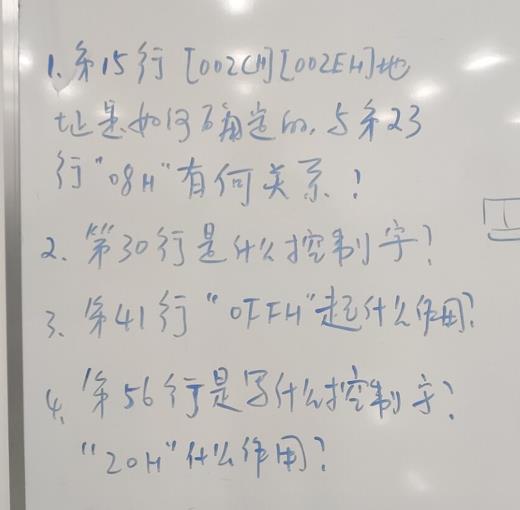 1. 第15行 [002CH][002EH]地
址是如何确定的, 与第23
行"08H"有何关系?
2. 第30行是什么控制字?
3. 第41行"0FFH"起什么作用?
4. 第56行是写什么控制字?
"20H"什么作用?